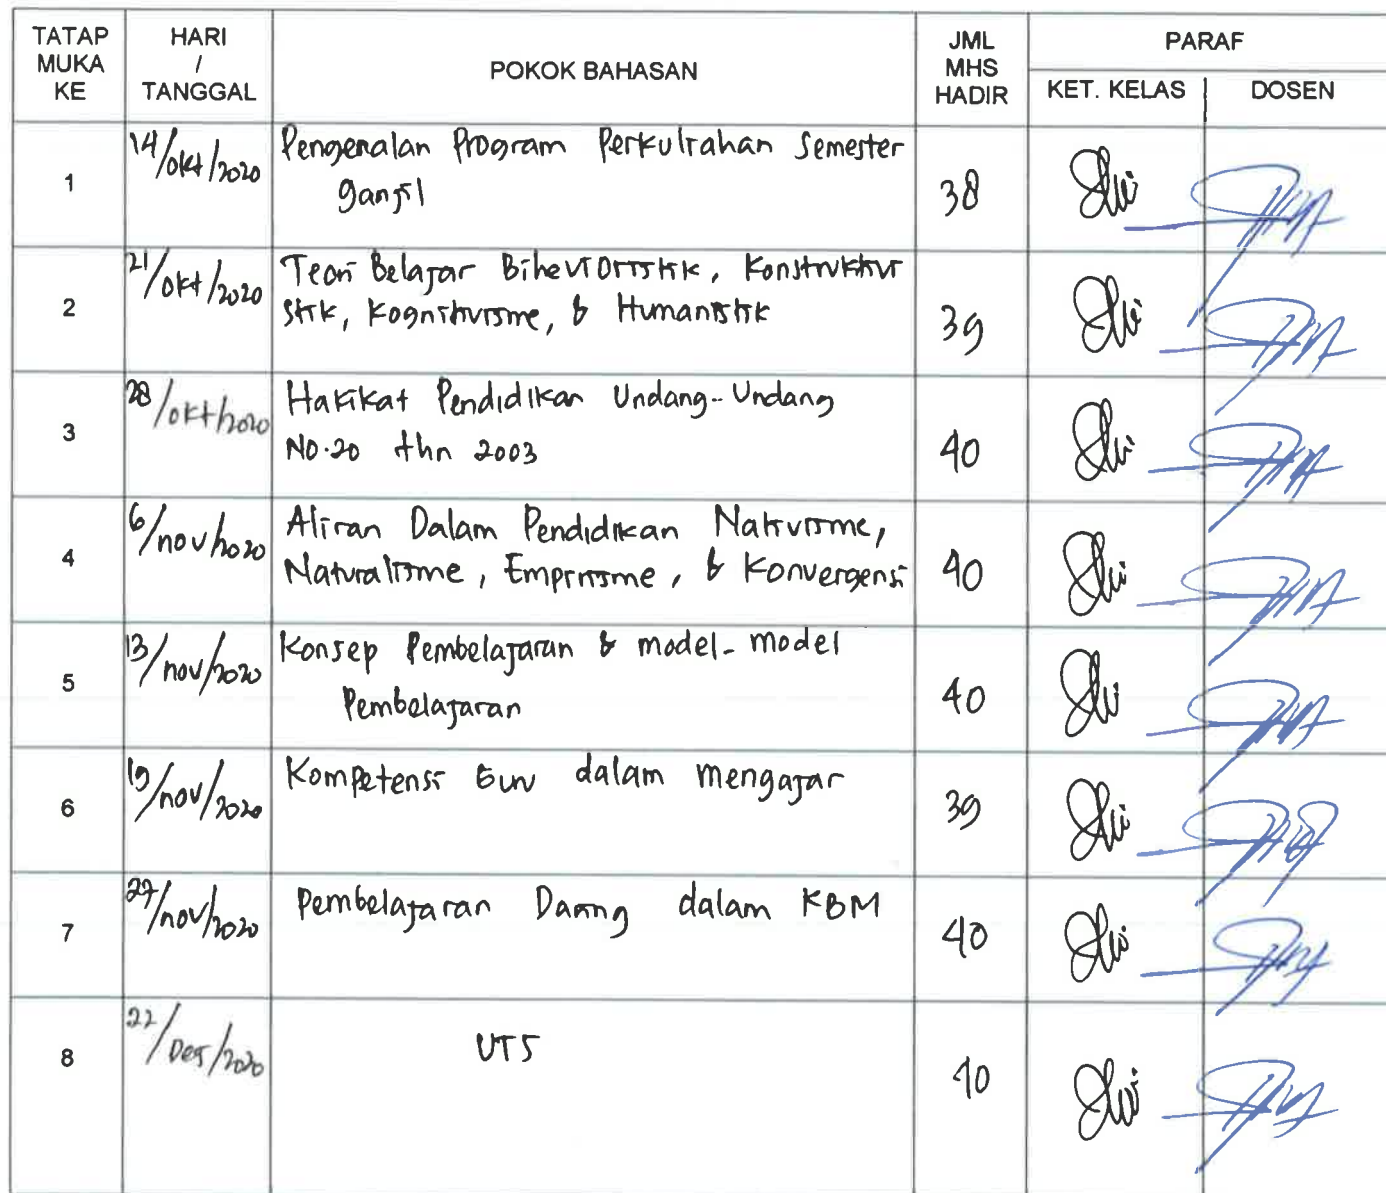 TATAP MUKA KE HARI / TANGGAL POKOK BAHASAN JML MHS HADIR PARAF
KET. KELAS DOSEN
1 14/okt/2020 Pengenalan Program Perkuliahan Semester
ganjil 38
2 21/okt/2020 Teori Belajar Bihevioristik, Konstruktivi
stik, Kognitivisme, & Humanistik 39
3 28/okt/2020 Hakikat Pendidikan Undang-Undang
No.20 thn 2003 40
4 6/nov/2020 Aliran Dalam Pendidikan Nativisme,
Naturalisme, Empirisme, & Konvergensi 40
5 13/nov/2020 Konsep Pembelajaran & model-model
Pembelajaran 40
6 19/nov/2020 Kompetensi Guru dalam mengajar 39
7 27/nov/2020 Pembelajaran Daring dalam KBM 40
8 22/Des/2020 UTS 40